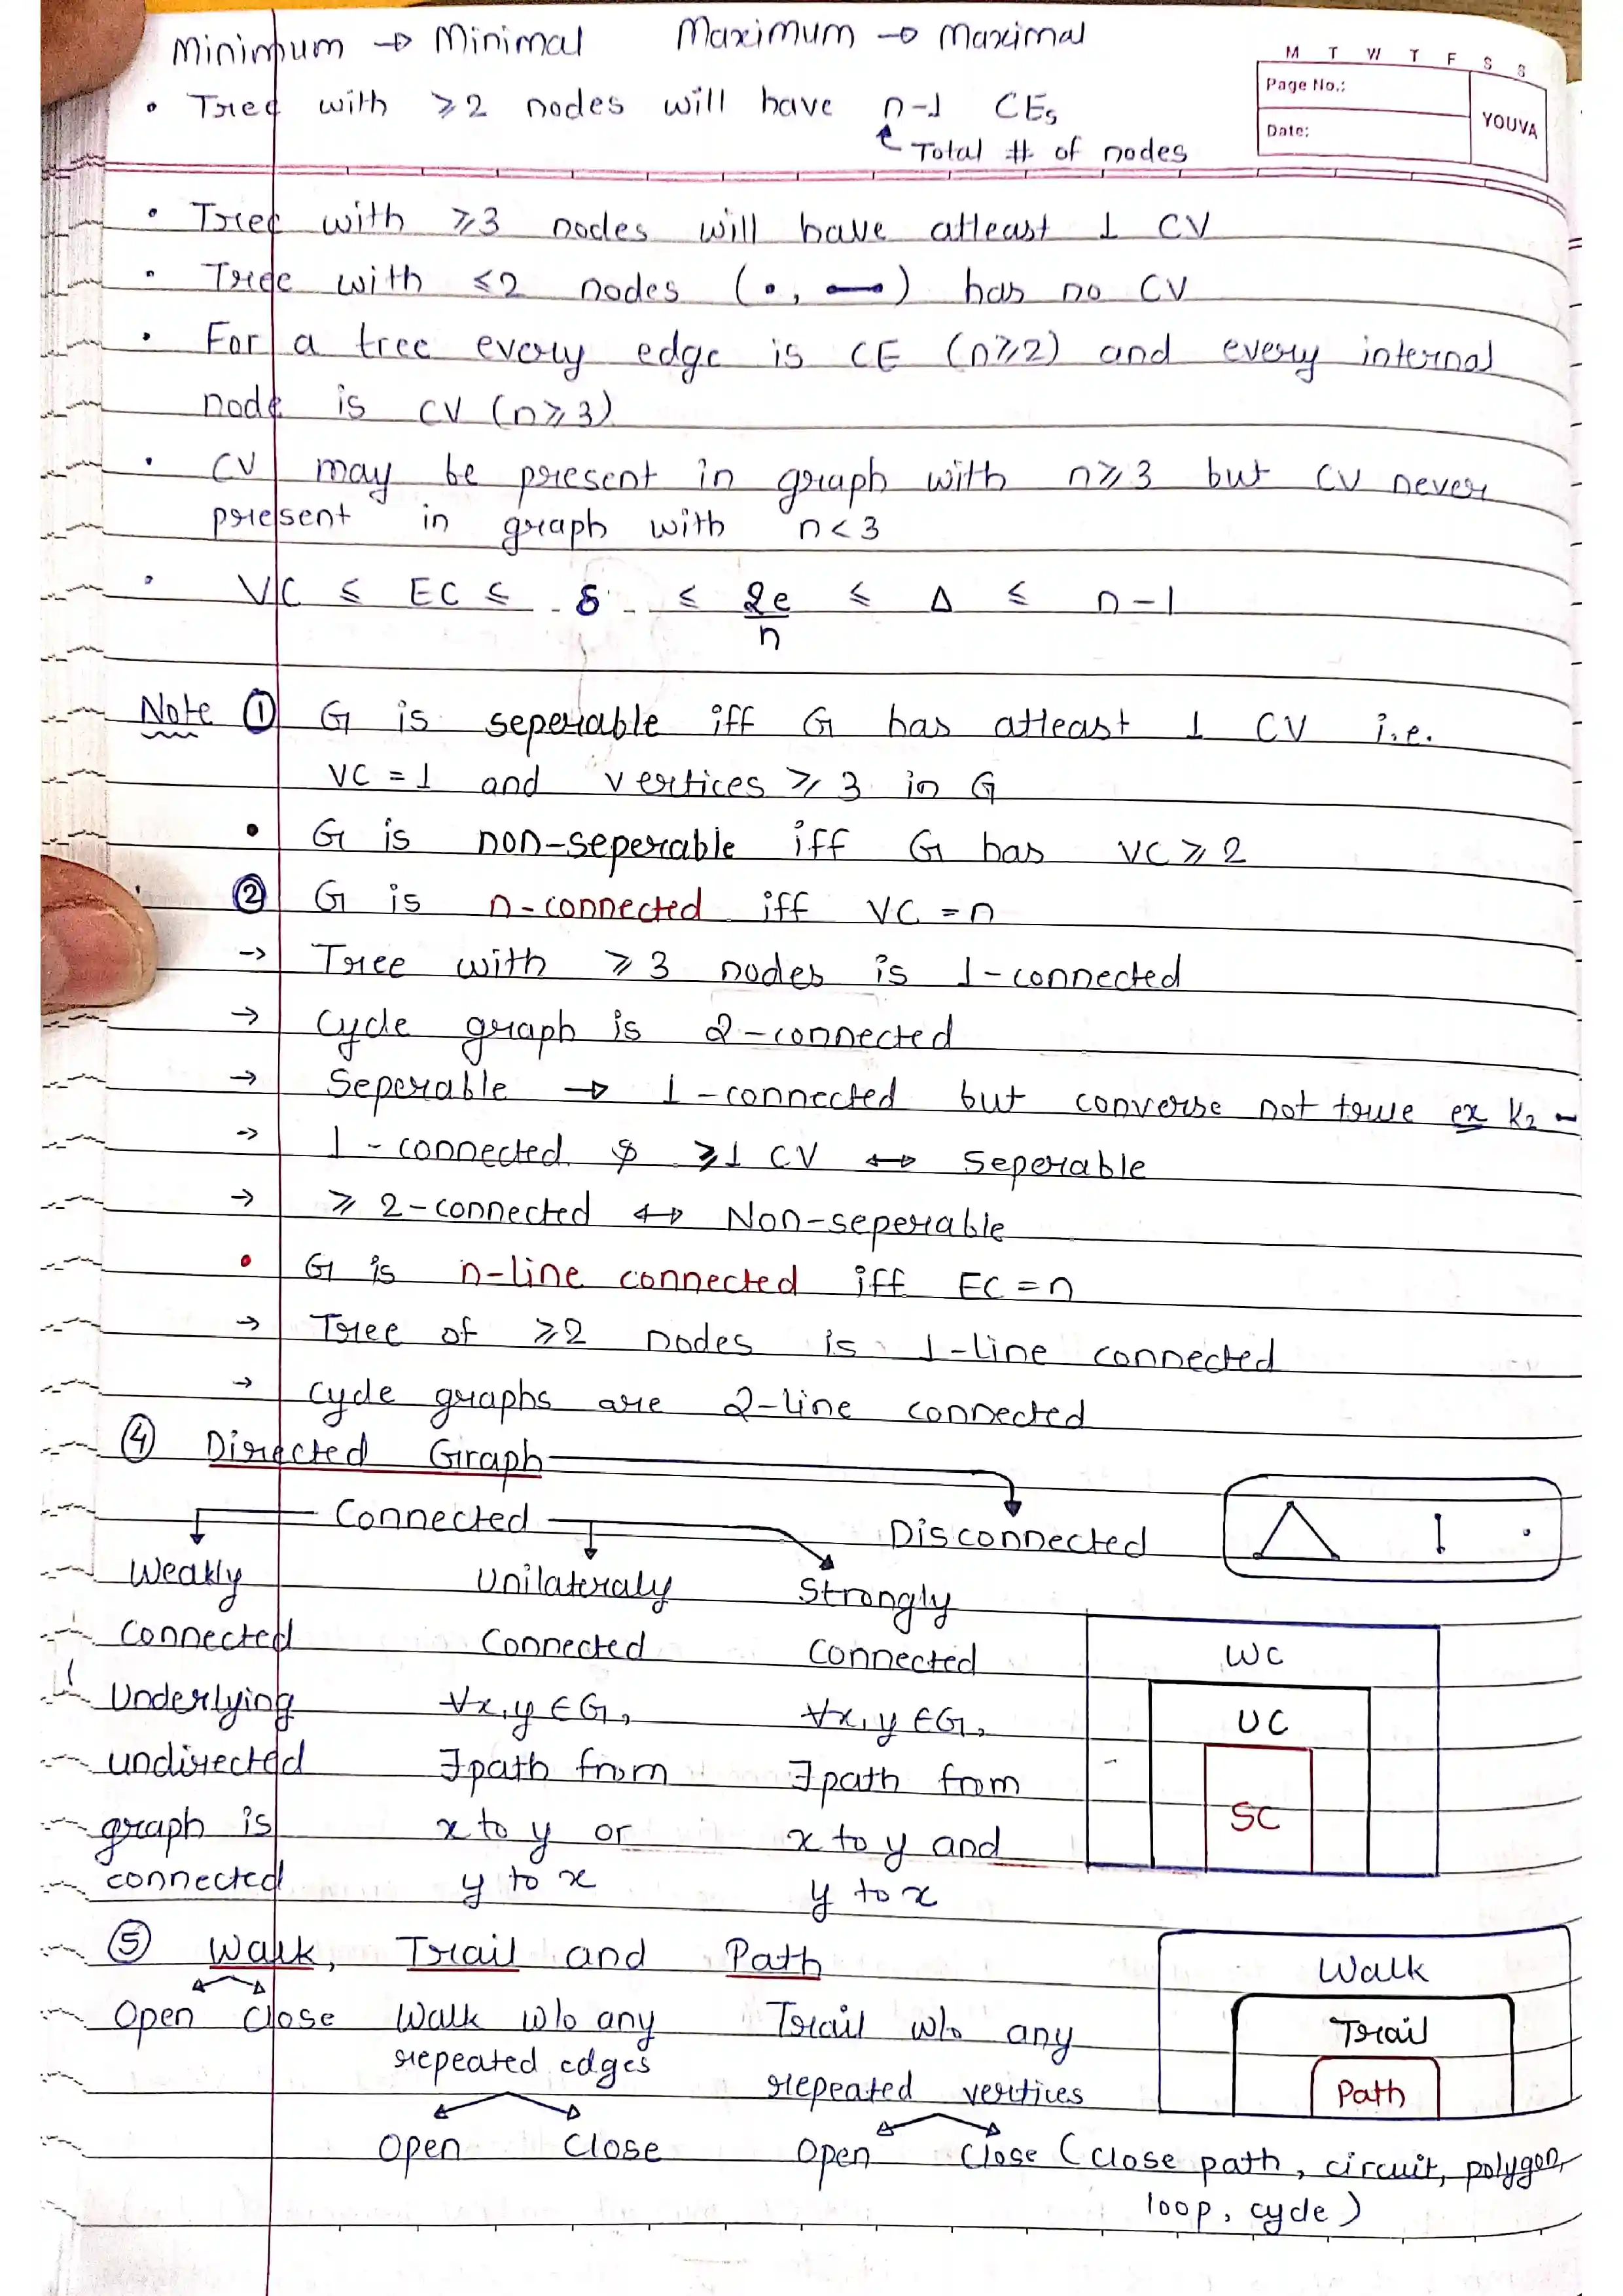 Minimum → Minimal Maximum → Maximal
M T W T F S S
Page No.:
Date:
YOUVA
• Tree with ≥2 nodes will have n-1 CEs
Total # of nodes
• Tree with ≥3 nodes will have atleast 1 CV
• Tree with ≤2 nodes ( • , •—• ) has no CV
• For a tree every edge is CE (n≥2) and every internal
node is CV (n≥3)
• CV may be present in graph with n≥3 but CV never
present in graph with n<3
• VC ≤ EC ≤ δ ≤ 2e/n ≤ Δ ≤ n-1
Note ① G is seperable iff G has atleast 1 CV i.e.
VC = 1 and vertices ≥ 3 in G
• G is non-seperable iff G has VC ≥ 2
② G is n-connected iff VC = n
→ Tree with ≥ 3 nodes is 1-connected
→ Cycle graph is 2-connected
→ Seperable → 1-connected but converse not true ex K2
→ 1-connected & ≥1 CV ↔ Seperable
→ ≥ 2-connected ↔ Non-seperable
• G is n-line connected iff EC = n
→ Tree of ≥2 nodes is 1-line connected
→ Cycle graphs are 2-line connected
④ Directed Graph
Connected Disconnected
Weakly Unilateraly Strongly
Connected Connected Connected
WC
Underlying ∀x,y ∈ G, ∀x,y ∈ G,
UC
undirected ∃path from ∃path from
graph is x to y or x to y and
SC
connected y to x y to x
⑤ Walk, Trail and Path
Walk
Open Close Walk w/o any Trail w/o any
Trail
repeated edges repeated vertices
Path
Open Close Open Close (Close path, circuit, polygon,
loop, cycle)